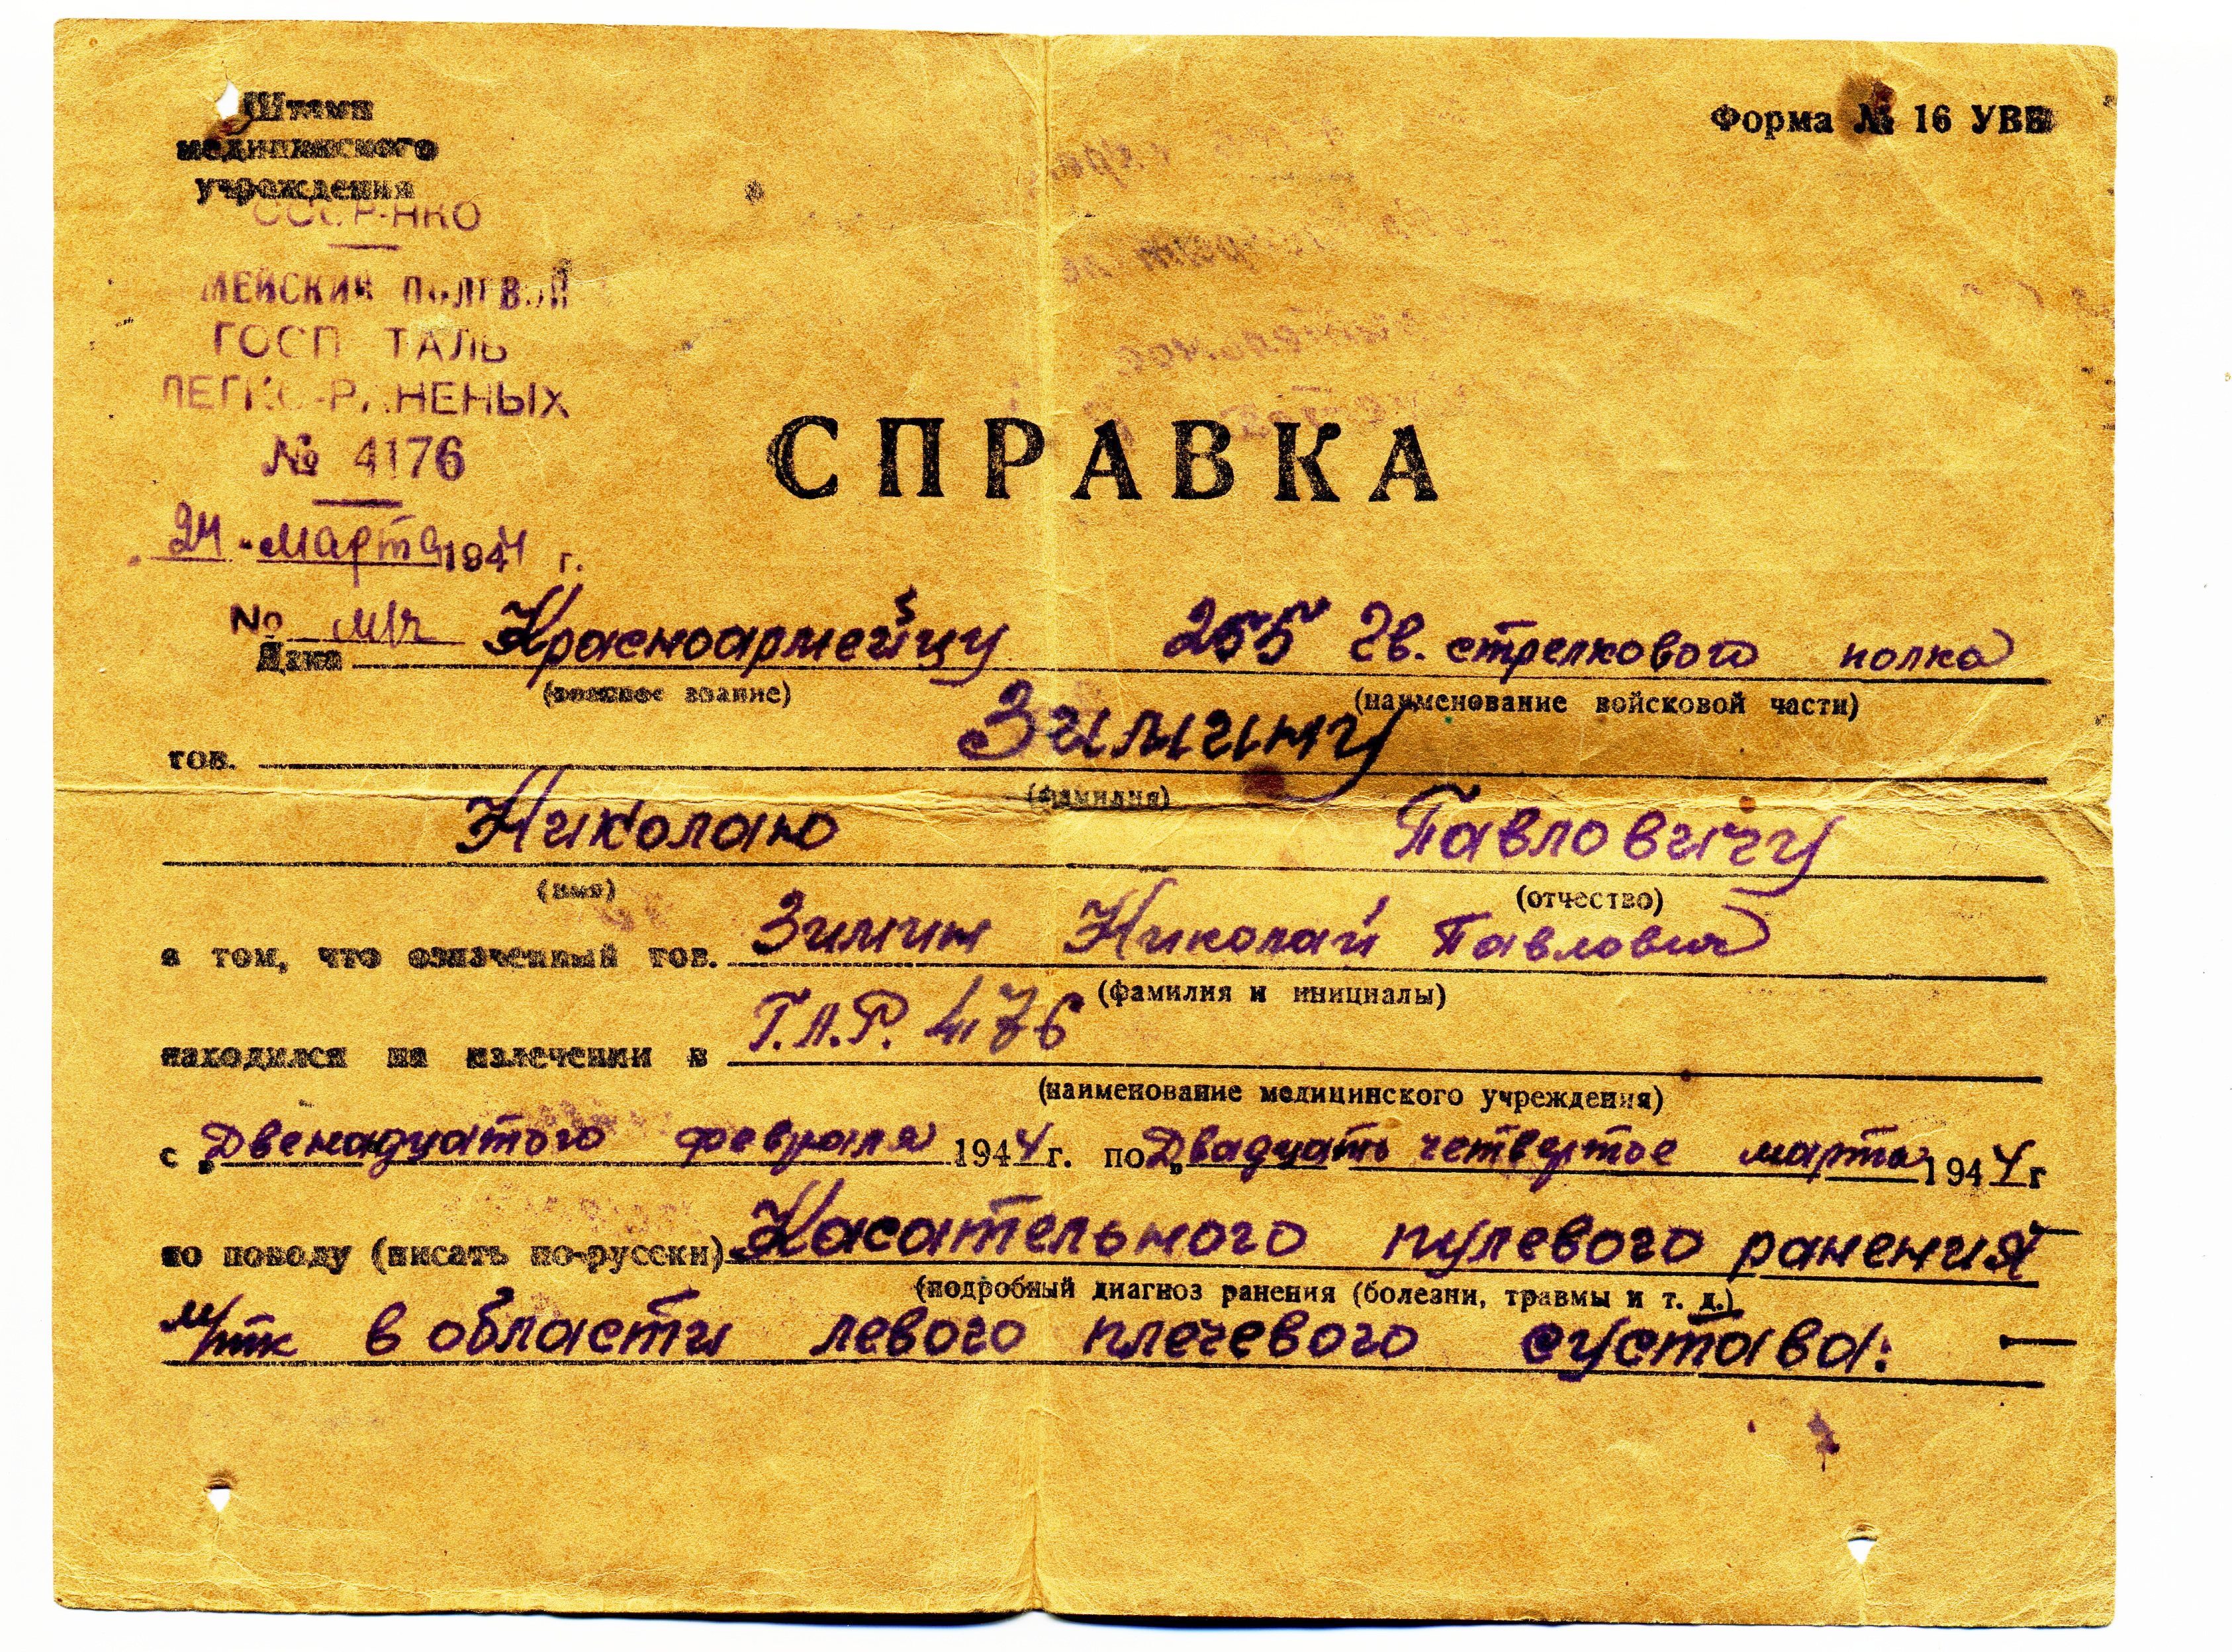 Штамп
медицинского
учреждения
Форма № 16 УВБ
СССР-НКО
МЕЙСКИЙ ПОЛЕВОЙ
ГОСП ТАЛЬ
ЛЕГКО-РАНЕНЫХ
№ 4176
СПРАВКА
24 марта 1944 г.
№
Дана Красноармейцу 255 Гв. стрелкового полка
(воинское звание) (наименование войсковой части)
тов. Зимину
(фамилия)
Николаю Павловичу
(имя) (отчество)
в том, что означенный тов. Зимин Николай Павлович
(фамилия и инициалы)
находился на излечении в Г.Л.Р. 4176
(наименование медицинского учреждения)
с Двенадцатого февраля 1944 г. по Двадцать четвертое марта 1944 г
по поводу (писать по-русски) Касательного пулевого ранения
(подробный диагноз ранения (болезни, травмы и т. д.)
м/тк в области левого плечевого сустава: —